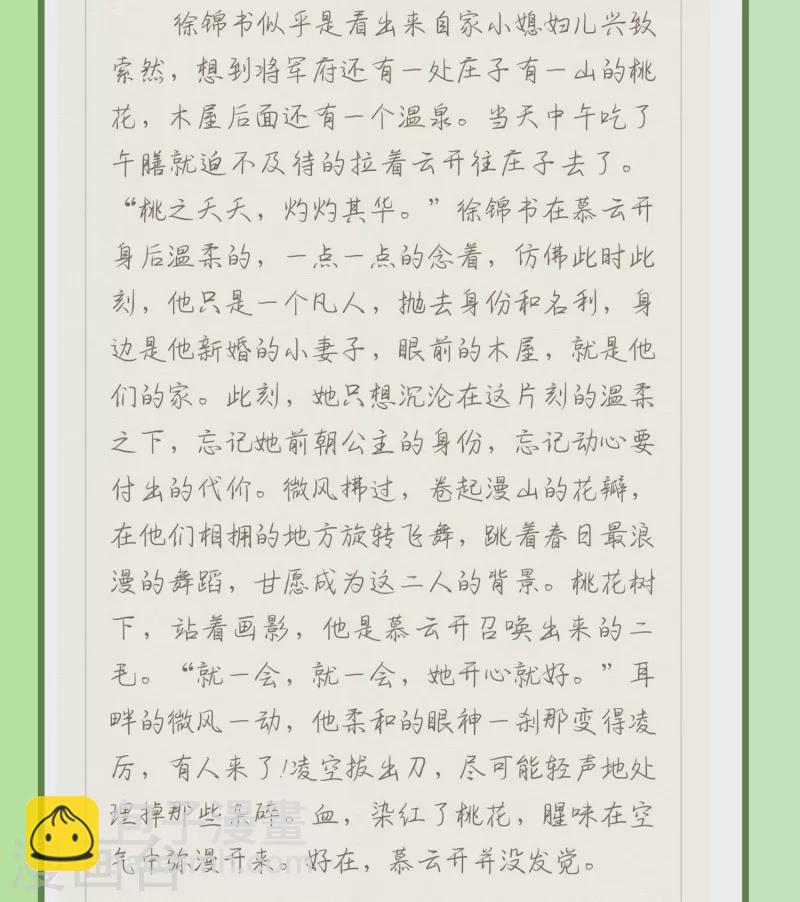 徐锦书似乎是看出来自家小媳妇儿兴致
索然，想到将军府还有一处庄子有一山的桃
花，木屋后面还有一个温泉。当天中午吃了
午膳就迫不及待的拉着云开往庄子去了。
“桃之夭夭，灼灼其华。”徐锦书在慕云开
身后温柔的，一点一点的念着，仿佛此时此
刻，他只是一个凡人，抛去身份和名利，身
边是他新婚的小妻子，眼前的木屋，就是他
们的家。此刻，她只想沉沦在这片刻的温柔
之下，忘记她前朝公主的身份，忘记动心要
付出的代价。微风拂过，卷起漫山的花瓣，
在他们相拥的地方旋转飞舞，跳着春日最浪
漫的舞蹈，甘愿成为这二人的背景。桃花树
下，站着画影，他是慕云开召唤出来的二
毛。“就一会，就一会，她开心就好。”耳
畔的微风一动，他柔和的眼神一刹那变得凌
厉，有人来了！凌空拔出刀，尽可能轻声地处
理掉那些杂碎。血，染红了桃花，腥味在空
气中弥漫开来。好在，慕云开并没发觉。
包子漫畫